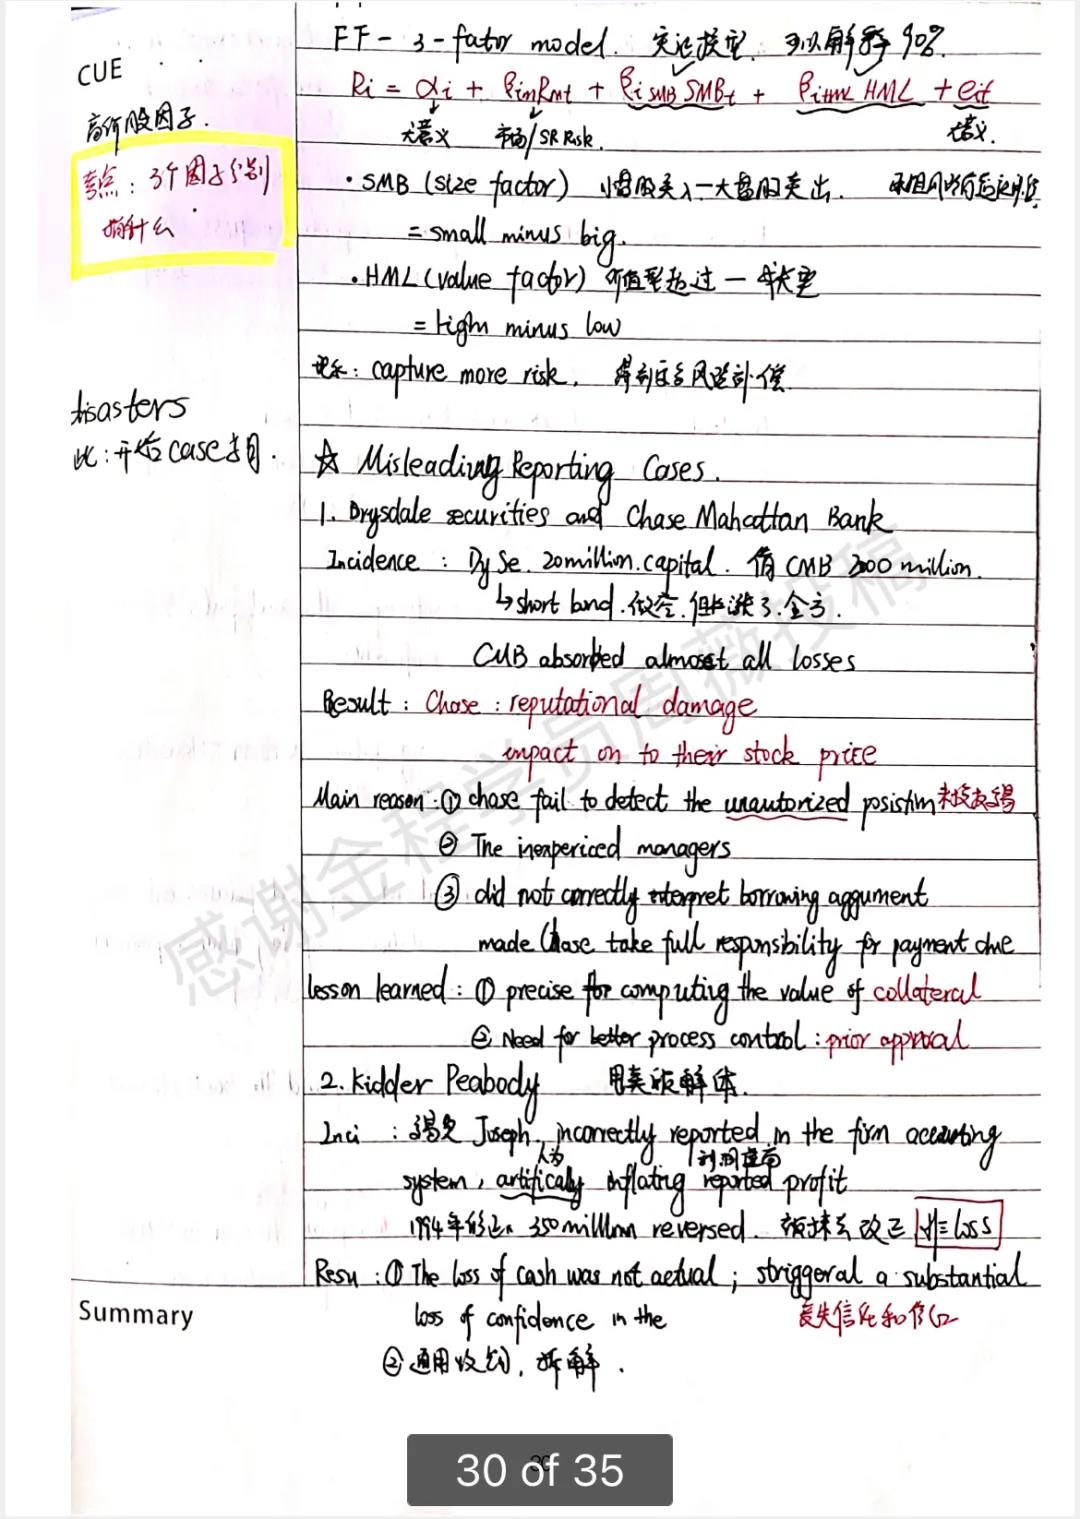 FF- 3-fator model. 实证模型. 可以解释 90%.
CUE
Ri = αi + βimRmt + βiSMB SMBt + βiHML HML + eit
无意义 市场/SR Risk. 无意义.
考点: 3个因子分别
指什么
• SMB (size factor) 小盘股买入一大盘股卖出.
= small minus big.
• HML (value factor) 价值型超过一成长型
= High minus low
capture more risk. 得到更多风险补偿.
disasters
此: 开始case题目.
☆ Misleading Reporting Cases.
1. Drysdale securities and Chase Mahattan Bank
Incidence : Dy Se. 20million.capital. 借 CMB 300 million.
↳ short bond. 做空. 但上涨了.全亏.
CMB absorbed almost all losses
Result : Chase : reputational damage
impact on to their stock price
Main reason : ① chase fail to detect the unautorized posistim 未授权交易
② The inexpericed managers
③ did not correctly interpret borrowing aggument
made Chase take full responsibility for payment due
lesson learned : ① precise for computing the value of collateral
② Need for better process control : prior approval
2. Kidder Peabody 解体.
Inci : 交易员 Joseph, incorrectly reported in the firm accounting
人为 利润虚高
system, artifically inflating reported profit
1994年修正 350 million reversed. 改正 loss
Resu : ① The loss of cash was not actual ; striggeral a substantial
Summary
loss of confidence in the 丧失信任和信心
② 通用收购, 拆解.
感谢金程学员周薇投稿
30 of 35